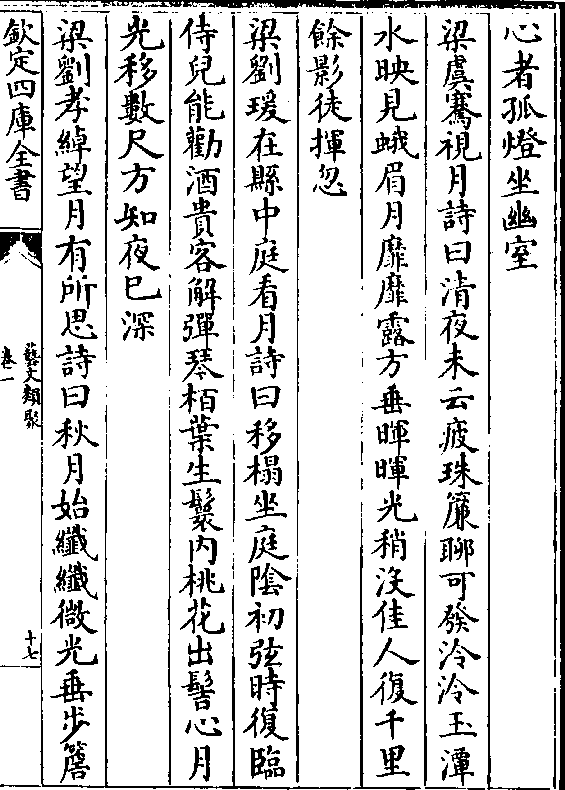 心者孤燈坐幽室
梁虞騫視月詩曰清夜未云疲珠簾聊可發泠泠玉潭
水映見蛾眉月靡靡露方垂暉暉光稍沒佳人復千里
餘影徒揮忽
梁劉瑗在縣中庭看月詩曰移榻坐庭陰初弦時復臨
侍兒能勸酒貴客解彈琴栢葉生鬟内桃花出髻心月
光移數尺方知夜已深
梁劉孝綽望月有所思詩曰秋月始纖纖微光垂步簷
欽定四庫全書
藝文類聚
卷一
十七